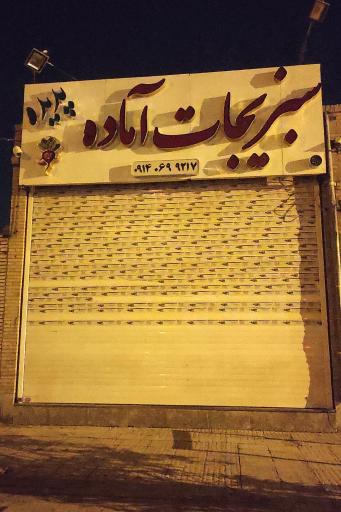 سبزیجات آماده
۰۹۱۴ ۰۶۹ ۹۲۱۷